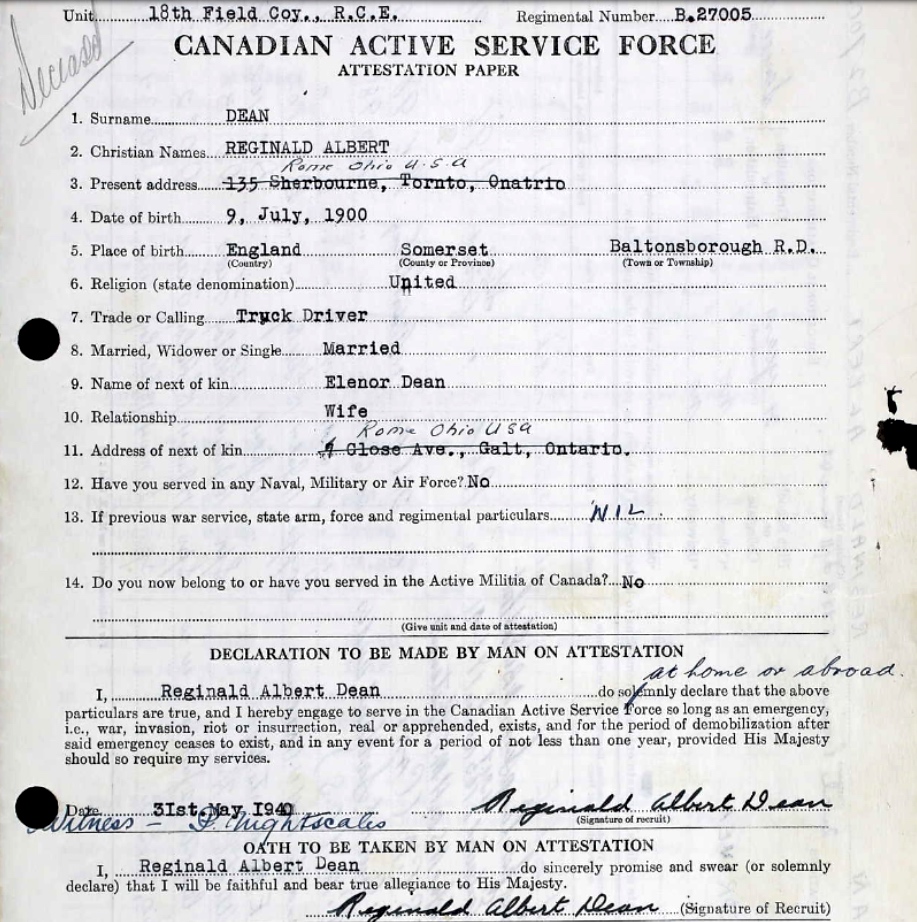 Unit 18th Field Coy., R.C.E. Regimental Number B.27005
Deceased
CANADIAN ACTIVE SERVICE FORCE
ATTESTATION PAPER
1. Surname DEAN
2. Christian Names REGINALD ALBERT
Rome Ohio U.S.A
3. Present address 135 Sherbourne, Tornto, Onatrio
4. Date of birth 9, July, 1900
5. Place of birth England Somerset Baltonsborough R.D.
(Country) (County or Province) (Town or Township)
6. Religion (state denomination) United
7. Trade or Calling Truck Driver
8. Married, Widower or Single Married
9. Name of next of kin Elenor Dean
10. Relationship Wife
Rome Ohio USA
11. Address of next of kin Close Ave., Galt, Ontario.
12. Have you served in any Naval, Military or Air Force? No
13. If previous war service, state arm, force and regimental particulars NIL
14. Do you now belong to or have you served in the Active Militia of Canada? No
(Give unit and date of attestation)
DECLARATION TO BE MADE BY MAN ON ATTESTATION
at home or abroad.
I, Reginald Albert Dean do solemnly declare that the above
particulars are true, and I hereby engage to serve in the Canadian Active Service Force so long as an emergency,
i.e., war, invasion, riot or insurrection, real or apprehended, exists, and for the period of demobilization after
said emergency ceases to exist, and in any event for a period of not less than one year, provided His Majesty
should so require my services.
Date 31st May 1940 Reginald Albert Dean
(Signature of recruit)
Witness –
OATH TO BE TAKEN BY MAN ON ATTESTATION
I, Reginald Albert Dean do sincerely promise and swear (or solemnly
declare) that I will be faithful and bear true allegiance to His Majesty.
Reginald Albert Dean (Signature of Recruit)